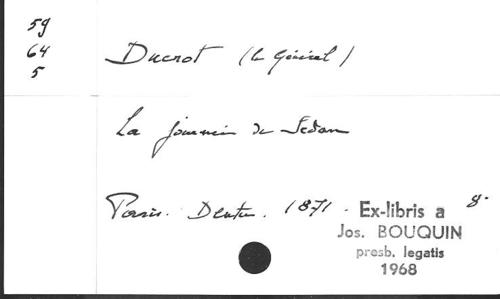 59
64
5
Ducrot (le Général)
La journée de Sedan
Paris. Dentu. 1871. 8°
Ex-libris a
Jos. BOUQUIN
presb. legatis
1968